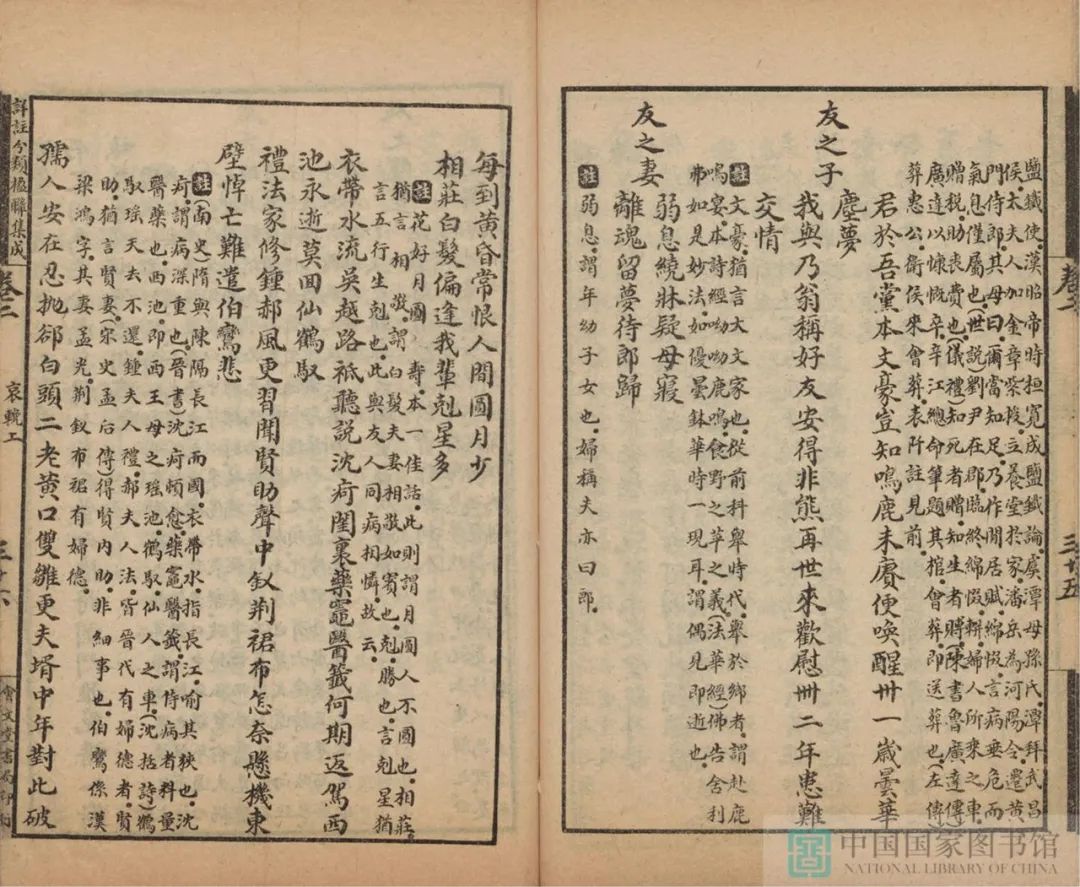 鹽鐵使漢昭帝時桓寬成鹽鐵論虞潭母孫氏潭拜武昌
侯太夫人加金章紫授立養堂於家潘岳為河陽令還黃
門侍郎其母曰爾當知足乃作閒居賦綿惙言病垂危而
氣息僅屬也(世說)劉尹在郡臨終綿惙輧婦人所來之車
贈稅助喪費也(儀禮)知死者贈知生者賻(陳書魯廣達傳)
廣達以慷慨卒辛江總命筆題其棺會葬即送葬也(左傳)
葬惠公衛侯來會葬表阡註見前
友之子
君於吾黨本文豪豈知鳴鹿未賡便喚醒卅一歲曇華
塵夢
我與乃翁稱好友安得非熊再世來歡慰卅二年患難
交情
註 文豪猶言大文家也從前科舉時代舉於鄉者謂赴鹿
鳴宴本詩經呦呦鹿鳴食野之苹之義(法華經)佛告舍利
弗如是妙法如優曇鉢華時一現耳謂偶見即逝也
友之妻
弱息繞牀疑母寢
離魂留夢待郎歸
註 弱息謂年幼子女也婦稱夫亦曰郎
卷二
三十五
每到黃昏常恨人間圓月少
相莊白髮偏逢我輩剋星多
註 花好月圓人壽本一佳話此則謂月圓人不圓也相莊
猶言相敬謂白髮夫妻相敬如賓也剋勝也言剋星猶
言五行生剋也此與友人同病相憐故云
衣帶水流吳越路祗聽說沈疴閨裏藥竈醫籤何期返駕西
池永逝莫回仙鶴馭
禮法家修鍾郝風更習聞賢助聲中釵荆裙布怎奈懸機東
壁悼亡難遣伯鸞悲
註 (南史)隋與陳隔長江而國衣帶水指長江喻其狹也沈
疴謂病深重也(晉書)沈疴頓愈藥竈醫籤謂侍病者料量
醫藥也西池即西王母之瑤池鶴馭仙人之車(沈括詩)鶴
馭瑤天去不還鍾夫人禮郝夫人法皆晉代有婦德者賢
助猶言賢妻(宋史孟后傳)得賢內助非細事也伯鸞係漢
梁鴻字其妻孟光荆釵布裙有婦德
孺人安在忍拋郤白頭二老黃口雙雛更夫壻中年對此破
詳註分類楹聯集成
卷二
哀輓上
三十六
會文堂書局印行
中国国家图书馆
NATIONAL LIBRARY OF CHINA